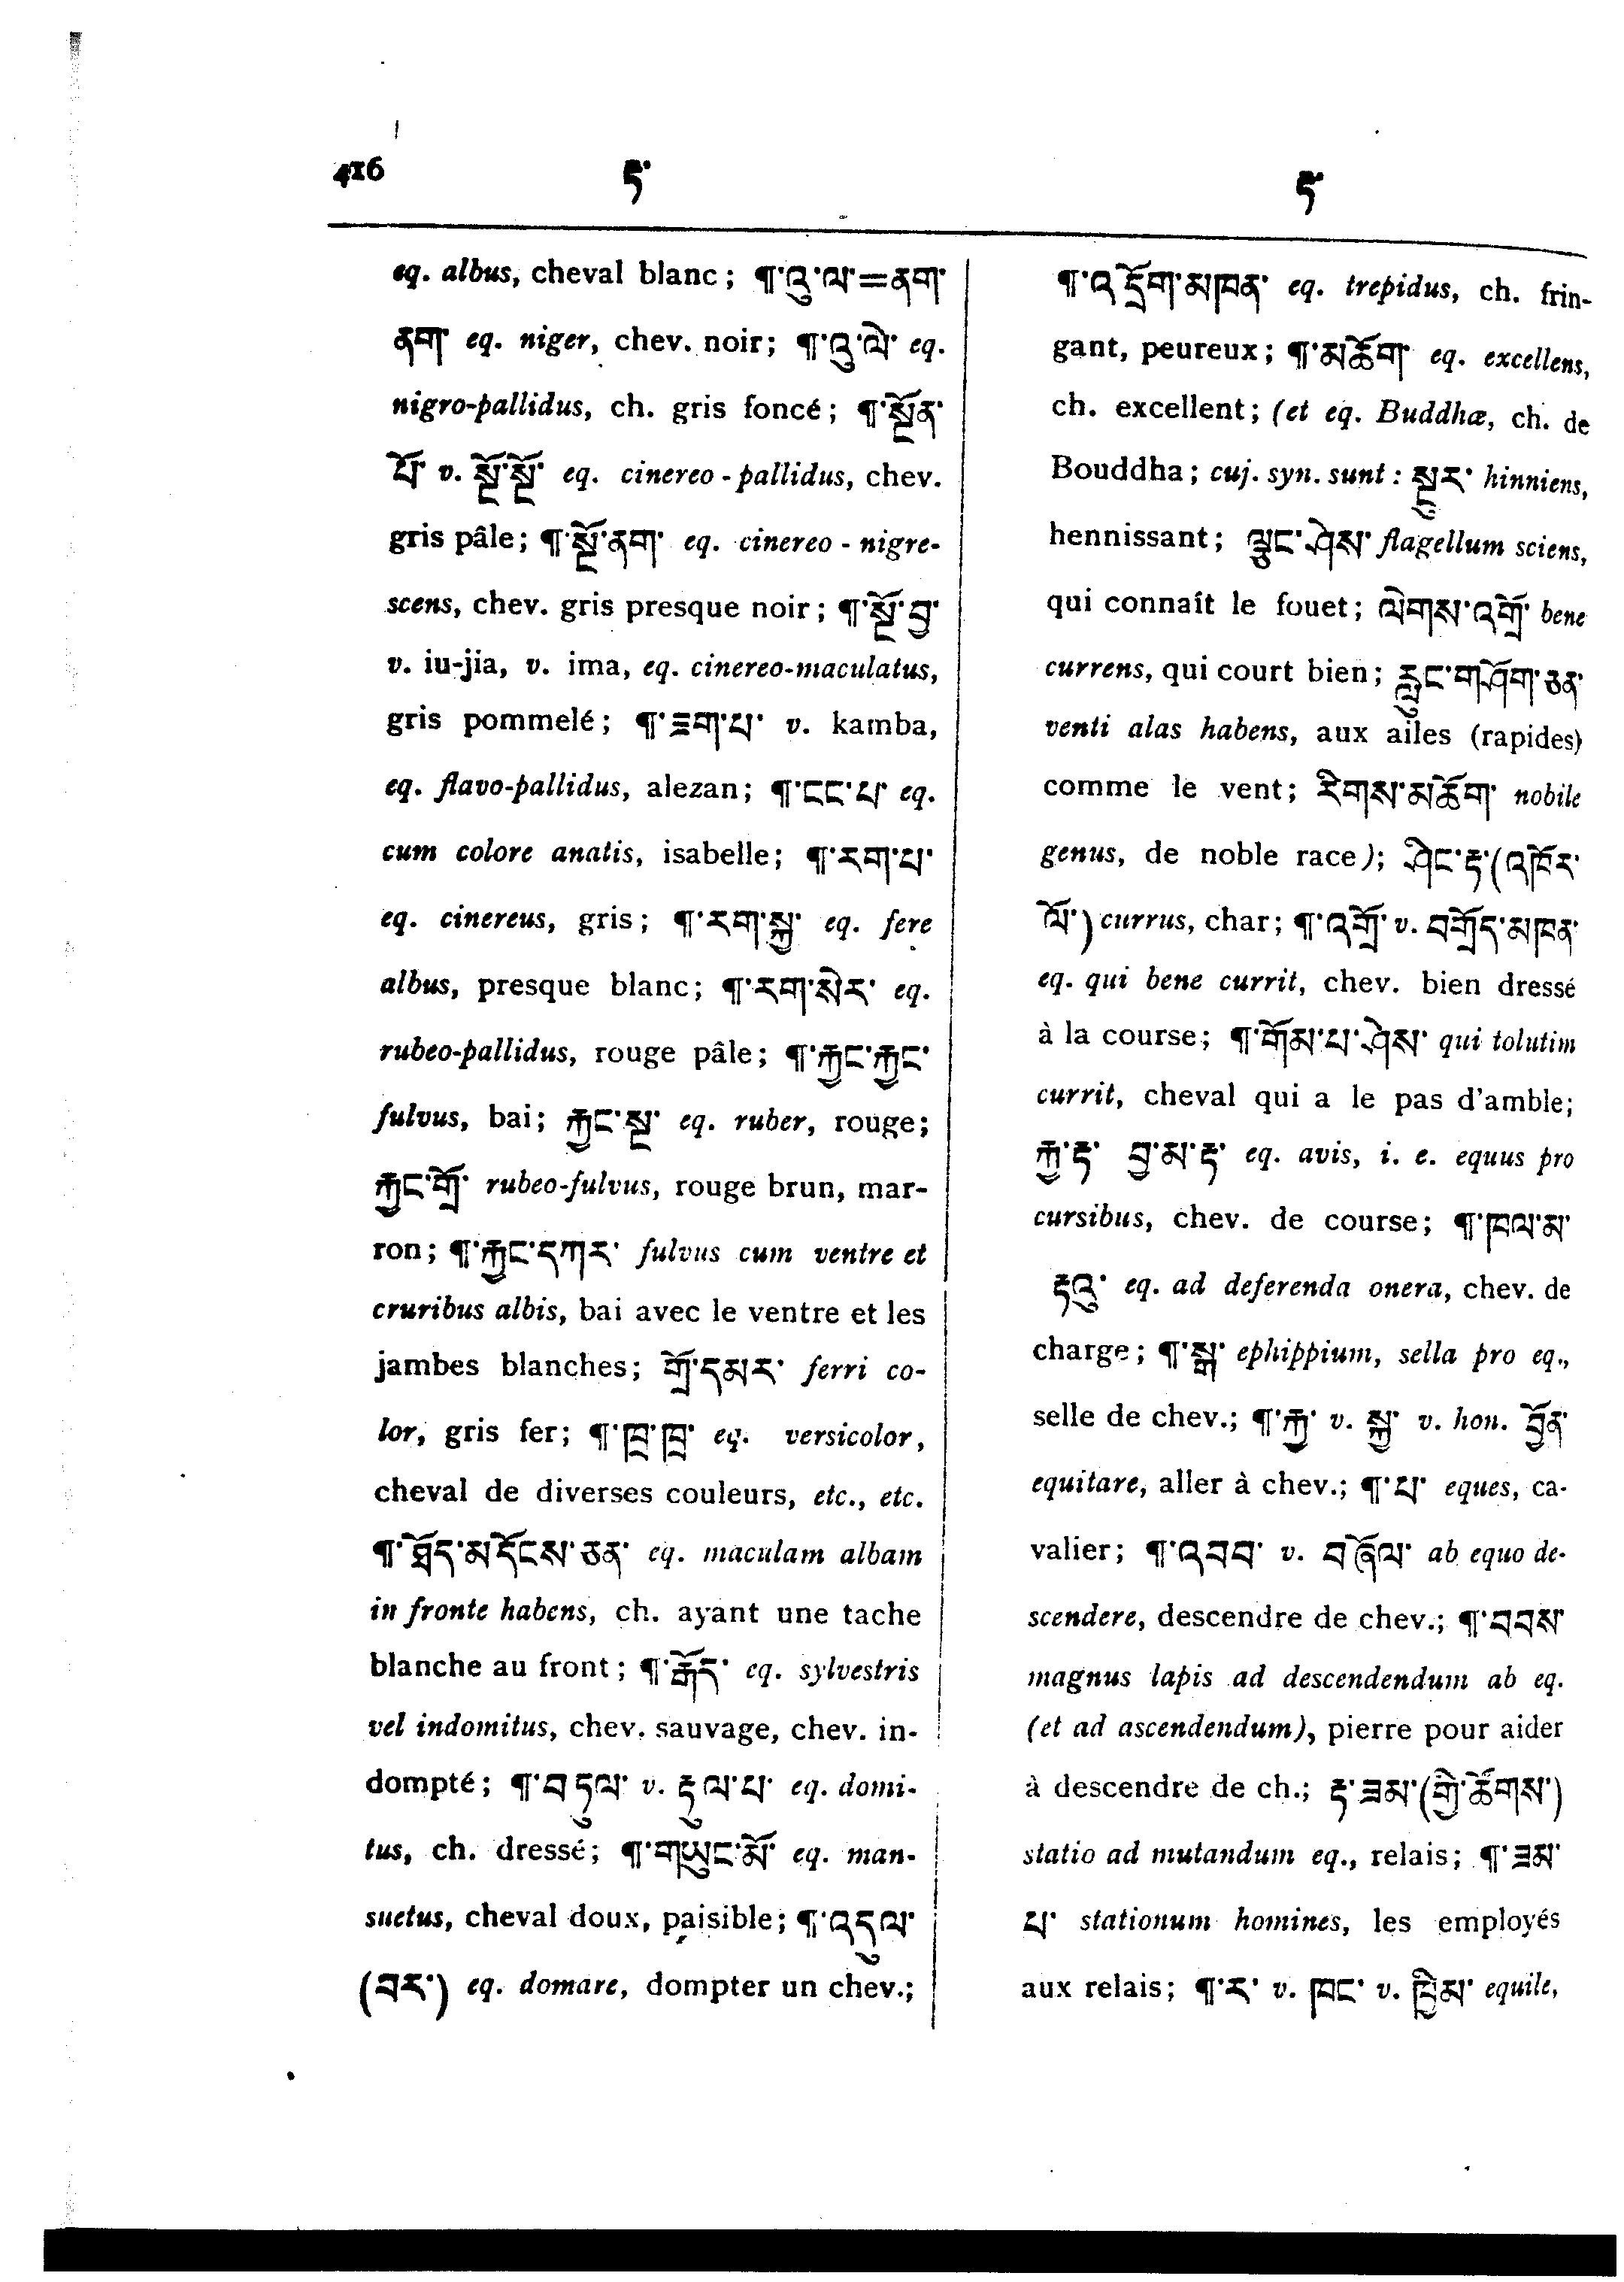 416 ཏ་ ཏ་
eq. albus, cheval blanc; ¶་འུ་ལ་=ནག་
ནག་ eq. niger, chev. noir; ¶་འུ་ལེ་ eq.
nigro-pallidus, ch. gris foncé; ¶་སྔོན་
པོ་ v. སྔོ་སྔོ་ eq. cinereo-pallidus, chev.
gris pâle; ¶་སྔོ་ནག་ eq. cinereo-nigre-
scens, chev. gris presque noir; ¶་སྔོ་བྱ་
v. iu-jia, v. ima, eq. cinereo-maculatus,
gris pommelé; ¶་ཟག་པ་ v. kamba,
eq. flavo-pallidus, alezan; ¶་ངང་པ་ eq.
cum colore anatis, isabelle; ¶་རག་པ་
eq. cinereus, gris; ¶་རག་སྐྱ་ eq. fere
albus, presque blanc; ¶་རག་སེར་ eq.
rubeo-pallidus, rouge pâle; ¶་རྐྱང་རྐྱང་
fulvus, bai; རྐྱང་སྔ་ eq. ruber, rouge;
རྐྱང་གྲོ་ rubeo-fulvus, rouge brun, mar-
ron; ¶་རྐྱང་དཀར་ fulvus cum ventre et
cruribus albis, bai avec le ventre et les
jambes blanches; གྲོ་དམར་ ferri co-
lor, gris fer; ¶་ཁྲ་ཁྲ་ eq. versicolor,
cheval de diverses couleurs, etc., etc.
¶་ཐོད་མདོངས་ཅན་ eq. maculam albam
in fronte habens, ch. ayant une tache
blanche au front; ¶་རྒོད་ eq. sylvestris
vel indomitus, chev. sauvage, chev. in-
dompté; ¶་བཏུལ་ v. རྟུལ་པ་ eq. domi-
tus, ch. dressé; ¶་གཡུང་མོ་ eq. man-
suetus, cheval doux, paisible; ¶་འདུལ་
(བར་) eq. domare, dompter un chev.;
¶་འདྲོག་མཁན་ eq. trepidus, ch. frin-
gant, peureux; ¶་མཆོག་ eq. excellens,
ch. excellent; (et eq. Buddhæ, ch. de
Bouddha; cuj. syn. sunt: སྔུར་ hinniens,
hennissant; ལྕུང་ཤེས་ flagellum sciens,
qui connaît le fouet; ལེགས་འགྲོ་ bene
currens, qui court bien; རླུང་གཤོག་ཅན་
venti alas habens, aux ailes (rapides)
comme le vent; རིགས་མཆོག་ nobile
genus, de noble race); ཤིང་རྟ་(འཁོར་
ལོ་) currus, char; ¶་འགྲོ་ v. བགྲོད་མཁན་
eq. qui bene currit, chev. bien dressé
à la course; ¶་གོམ་པ་ཤེས་ qui tolutim
currit, cheval qui a le pas d'amble;
རྐྱ་རྟ་ བྱ་མ་རྟ་ eq. avis, i. e. equus pro
cursibus, chev. de course; ¶་ཁལ་མ་
རྟེའུ་ eq. ad deferenda onera, chev. de
charge; ¶་སྒ་ ephippium, sella pro eq.,
selle de chev.; ¶་རྐྱ་ v. སྐྱ་ v. hon. བྱོན་
equitare, aller à chev.; ¶་པ་ eques, ca-
valier; ¶་འབབ་ v. བཞོལ་ ab equo de-
scendere, descendre de chev.; ¶་བབས་
magnus lapis ad descendendum ab eq.
(et ad ascendendum), pierre pour aider
à descendre de ch.; རྟ་ཟམ་(གྱི་ཚོགས་)
statio ad mutandum eq., relais; ¶་ཟམ་
པ་ stationum homines, les employés
aux relais; ¶་ར་ v. ཁང་ v. ཁྲིམ་ equile,